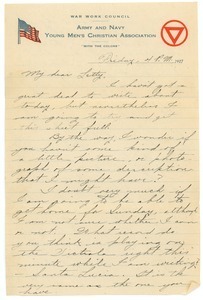 WAR WORK COUNCIL
ARMY AND NAVY
YOUNG MEN'S CHRISTIAN ASSOCIATION
"WITH THE COLORS"
Friday, 4 P.M. 191
My dear
I haven't got a
great deal to write about
today, but nevertheless I
am going to try and get
this sheet full.
By the way, I wonder if
you haven't some kind of
a little picture, or photo-
graph of some description
that I might have?
I doubt very much if
I am going to be able to
get home for Sunday, although
I am not sure whether I am
or not. What record do
you think is playing on
the victrola right this
minute while I am writing?
Santa Lucia. It is the
very same as the one you
have